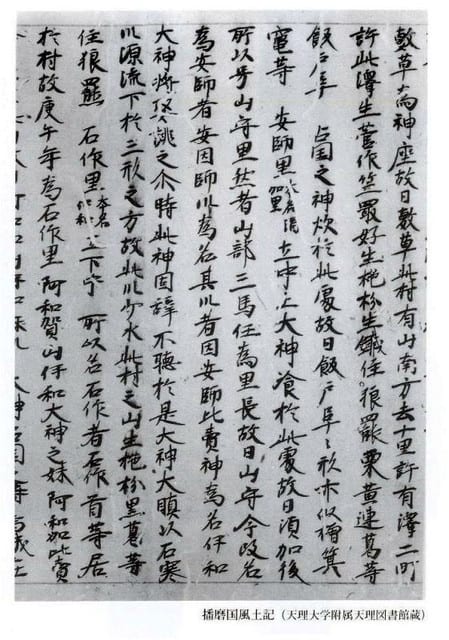 敷草為神座故曰敷草此村有山南方去十里許有澤二町
許此澤生菅作笠最好生柂枌生鐵住狼羆栗黄連葛等
飯戸阜 占国之神炊於此處故曰飯戸阜々形亦似檜箕
竈等 安師里 本名酒加里 土中上大神飡於此處故曰須加後
所以号山守里然者山部三馬任為里長故曰山守今改名
為安師者安因師川為名其川者因安師比賣神為名伊和
大神将娶誂之尓時此神固辞不聴於是大神大瞋以石塞
川源流下於三形之方故此川少水此村之山生柂枌黒葛等
住狼羆 石作里 本名伊和 土下中 所以名石作者石作首等居
於村故庚午年為石作里 阿和賀山伊和大神之妹阿和加比賣
播磨国風土記(天理大学附属天理図書館蔵)